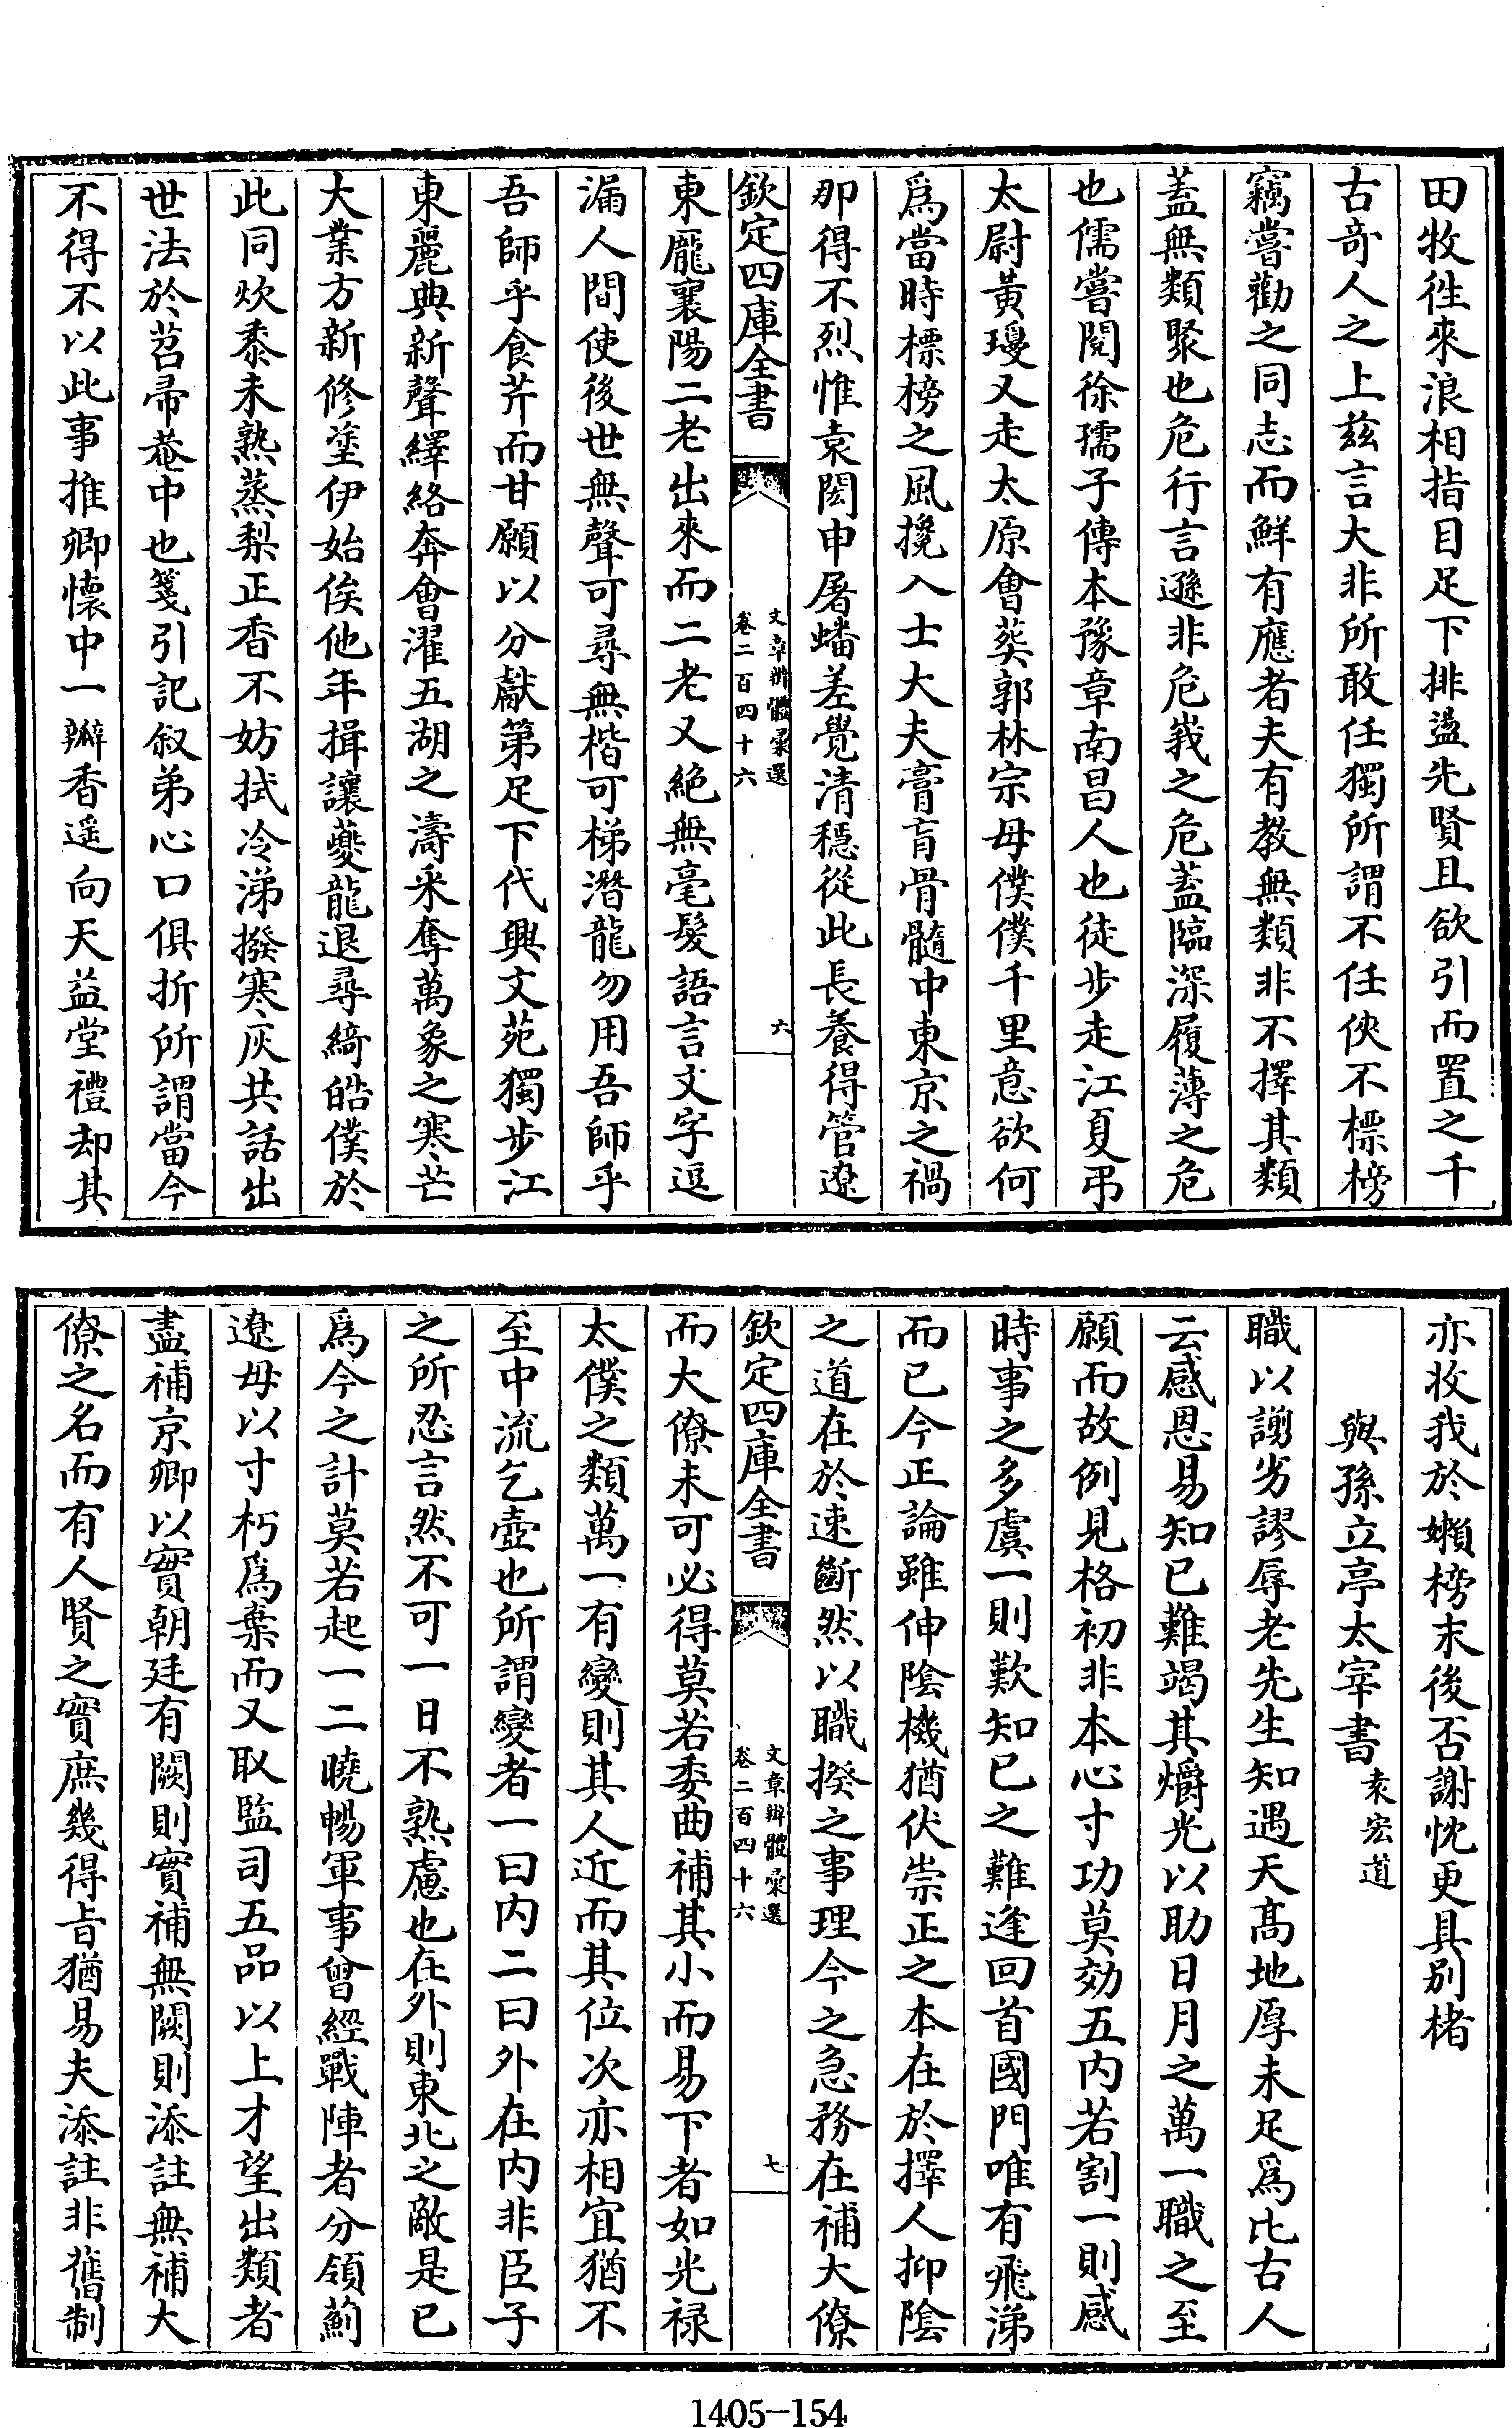 田牧徃來浪相指目足下排盪先賢且欲引而置之千
古竒人之上兹言大非所敢任獨所謂不任俠不標榜
竊嘗勸之同志而鮮有應者夫有教無類非不擇其類
蓋無類聚也危行言遜非危峩之危蓋臨深履薄之危
也儒嘗閲徐孺子傳本豫章南昌人也徒步走江夏弔
太尉黄瓊又走太原會葬郭林宗母僕僕千里意欲何
為當時標榜之風攙入士大夫膏肓骨髓中東京之禍
那得不烈惟袁閎申屠蟠差覺清穩從此長養得管遼
欽定四庫全書
文章辨體彚選
卷二百四十六
六
東龐襄陽二老出來而二老又絶無毫髮語言文字逗
漏人間使後世無聲可尋無楷可梯潛龍勿用吾師乎
吾師乎食芹而甘願以分獻第足下代興文苑獨步江
東麗典新聲繹絡奔會濯五湖之濤采奪萬象之寒芒
大業方新修塗伊始俟他年揖讓夔龍退尋綺皓僕於
此同炊黍未熟蒸梨正香不妨拭冷涕撥寒灰共話出
世法於苕帚菴中也箋引記叙弟心口俱折所謂當今
不得不以此事推卿懐中一瓣香遥向天益堂禮却其
亦收我於嬾榜末後否謝忱更具别楮
與孫立亭太宰書 袁宏道
職以謭劣謬辱老先生知遇天髙地厚未足為比古人
云感恩易知已難竭其爝光以助日月之萬一職之至
願而故例見格初非本心寸功莫効五内若割一則感
時事之多虞一則歎知已之難逢回首國門唯有飛涕
而已今正論雖伸陰機猶伏崇正之本在於擇人抑陰
之道在於速斷然以職揆之事理今之急務在補大僚
欽定四庫全書
文章辨體彚選
卷二百四十六
七
而大僚未可必得莫若委曲補其小而易下者如光禄
太僕之類萬一有變則其人近而其位次亦相宜猶不
至中流乞壺也所謂變者一曰内二曰外在内非臣子
之所忍言然不可一日不熟慮也在外則東北之敵是已
為今之計莫若起一二曉暢軍事曾經戰陣者分領薊
遼毋以寸朽為棄而又取監司五品以上才望出類者
盡補京卿以實朝廷有闕則實補無闕則添註無補大
僚之名而有人賢之實庶幾得㫖猶易夫添註非舊制
1405-154